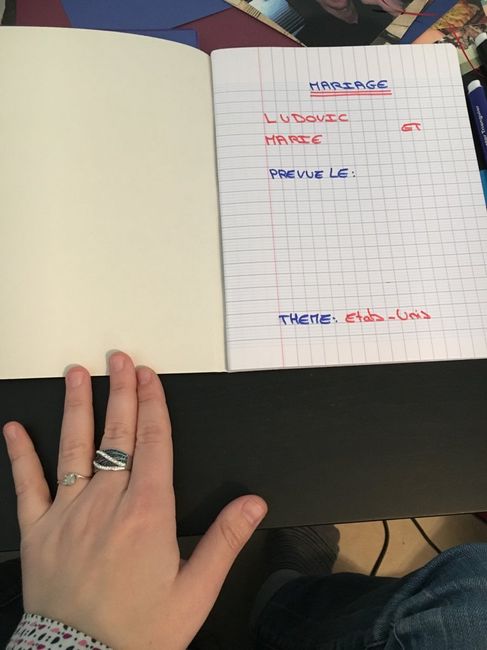 MARIAGE
LUDOVIC
ET
MARIE
PREVUE LE:
THEME: Etats-Unis